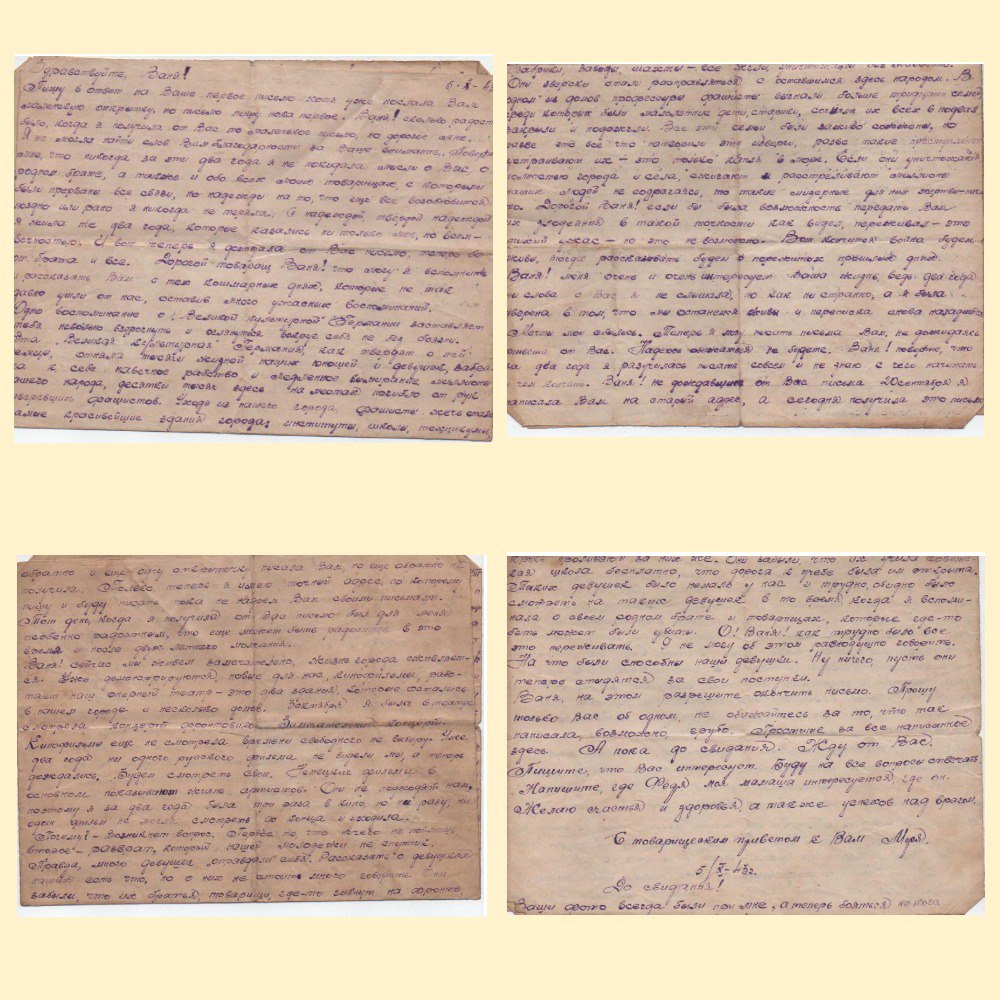 Здравствуйте, Ваня!
5-X-43
Пишу в ответ на Ваше первое письмо хотя уже послала Вам
маленькую открытку, но письмо пишу пока первое. Ваня! сколько радости
было, когда я получила от Вас, то маленькое письмо, но дорогое мне.
Я не могла найти слов Вам благодарности за Ваше внимание.
что никогда за эти два года я не покидала мысли о Вас, о
родном брате, а также и обо всех моих товарищах, с которыми
были прерваны все связи, но надежды на то, что еще все возобновится
поздно или рано я никогда не теряла. С надеждой, твердой надеждой
я жила те два года, которые казались ни только мне, но всем
вечностью. И вот теперь я дождала от Вас письмо, теперь
от брата и все. Дорогой товарищ Ваня! что могу я вспомнить
и рассказать Вам о тех кошмарных днях, которые не так
давно ушли от нас, оставив много ужасных воспоминаний.
Одно воспоминание о "Великой культурной" Германии заставляет
тебя невольно вздрогнуть и оглянуться вокруг себя не
Эта "Великая культурная" Германия, как твердят о ней
отняла тысячи жизней наших юношей и девушек,
к себе на вечное рабство и медленное вымирание миллионы
нашего народа, десятки тысяч здесь на местах погибло от рук
озверевших фашистов. Уходя из нашего города фашисты
самые красивейшие здания города; институты, школы, техникумы,
фабрики, заводы, шахты - все
Они зверски стали расправляться с оставшимся здесь народом. В
одном из домов профессуры фашисты выгнали больше тридцати семей
среди которых были малолетние дети, старики, их всех в подвал
закрыли и подожгли. Все эти семьи были заживо сожжены, но
разве это все что натворили эти изверги, разве такие преступления
устраивают их - это только капля в море. Если они уничтожали
полностью города и села, сжигают и расстреливают миллионы
наших людей не содрагаясь, то такие мизерные для них жертвы
Дорогой Ваня! если бы была возможность передать Вам
их людоедния в такой точности как видел, переживал - это
ужас - но это не возможно. Вот кончится война будем
живы, тогда рассказывать будем о пережитых прошлых днях.
Ваня! меня очень и очень интересует Ваша жизнь, ведь два года
ни слова о Вас я не слышала, но как не странно, а я была
уверена в том, что мы останемся живы и переписка снова
Мечты мои сбылись. Теперь я могу писать письма Вам, не дожидаясь
ответа от Вас. Надеюсь обижаться не будете. Ваня! поверьте, что
за два года я разучилась писать совсем и не знаю с чего начинать
и чем кончить. Ваня! не дождавшись от Вас письма 20 сентября я
написала Вам на старый адрес, а сегодня получила это письмо
обратно и еще одну открыточку писала Вам, но еще обратно не
получила. Только теперь я имею точный адрес, по которому
пишу и буду писать пока не надоем Вам своими письмами.
Тот день, когда я получила от Вас письмо был для меня
особенно радостным, что еще может быть радостнее в это
время и после двух летнего молчания.
Ваня! сейчас мы живем замечательно, жизнь города оживляет-
ся. Уже демонстрируются, новые для нас, кинофильмы, рабо-
тает наш оперный театр - это два здания, которые остались
в нашем городе и несколько домов. 3 октября я была в театре
смотрела концерт фронтовиков. Замечательный концерт.
Кинофильмы еще не смотрела времени свободного не выберу. Уже
два года ни одного русского фильма не видели мы, а теперь
дождались. Будем смотреть свои. Немецкие фильмы в
основном показывают жизнь артистов. Они не подходят нам,
поэтому я за два года была три раза в кино, но ни разу ни
один фильм не могла смотреть до конца и уходила.
"Почему?" - возникнет вопрос. Первое то что ничего не поймешь
второе - разврат, который нашей молодежи не
Правда, много девушек "оправдали" Рассказать о девушках
наших есть что, но о них не стоить много говорить. Они
забыли, что их братья, товарищи, где-то гибнут на фронте,
кровь проливают за них же. Они забыли, что их учила
кая школа бесплатно, что дорога к учебе была им открыта.
Таких девушек было немало у нас и трудно, обидно было
смотреть на таких девушек в то время когда я вспоми-
нала о своем родном брате и товарищах, которые где-то
быть может были убиты. О! Ваня! как трудно было все
это переживать. Я не могу об этом равнодушно говорить.
На что были способны наши девушки. Ну ничего, пусть они
теперь отвечают за свои поступки.
Ваня, на этом разрешите окончить письмо. Прошу
только Вас об одном, не обижайтесь за то, что так
написала, возможно, грубо. Простите за все написанное
здесь. А пока до свидания. Жду от Вас.
Пишите, что Вас интересует. Буду на все вопросы отвечать
Напишите, где Федя моя мамаша интересуется где он.
Желаю счастья и здоровья, а также успехов над врагом.
С товарищеским приветом к Вам Мура.
5/X-43г.
До свидания!
Ваши фото всегда были при мне, а теперь бояться не кого.